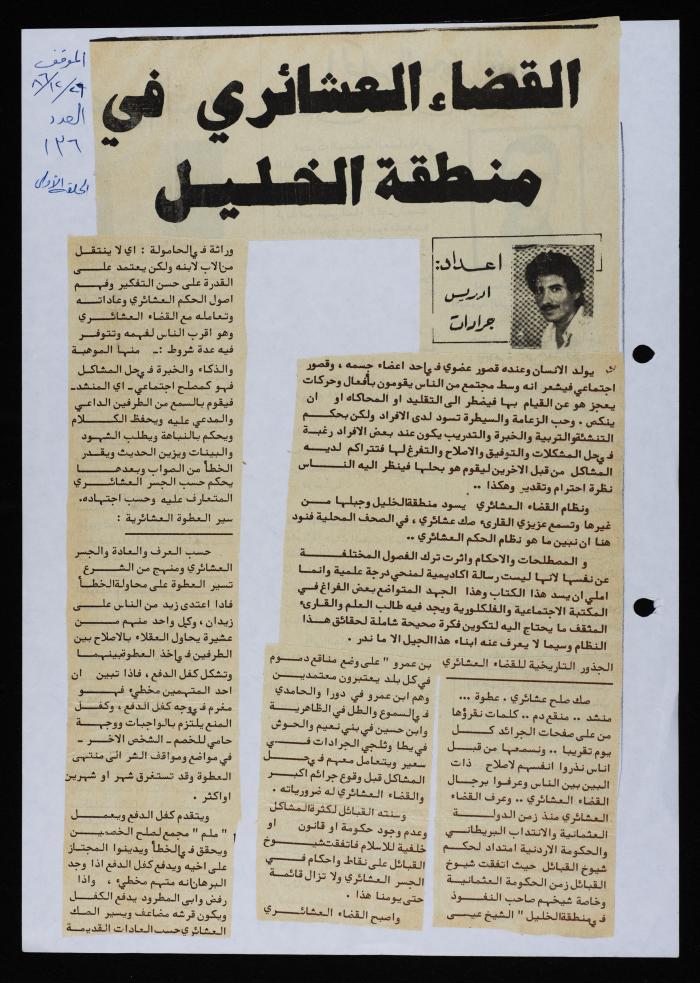 الموقف
٨٦/١٢/٢٩
العدد
١٣٦
الحلقة الأولى
القضاء العشائري في
منطقة الخليل
اعداد:
ادريس
جرادات
يولد الانسان وعنده قصور عضوي في احد اعضاء جسمه ، وقصور
اجتماعي فيشعر انه وسط مجتمع من الناس يقومون بأفعال وحركات
يعجز هو عن القيام بها فيضطر الى التقليد او المحاكاه او ان
ينكص . وحب الزعامة والسيطرة تسود لدى الافراد ولكن بحكم
التنشئة والتربية والخبرة والتدريب يكون عند بعض الافراد رغبة
في حل المشكلات والتوفيق والاصلاح والتفرغ لها فتتراكم لديه
المشاكل من قبل الاخرين ليقوم هو بحلها فينظر اليه الناس
نظرة احترام وتقدير وهكذا ..
ونظام القضاء العشائري يسود منطقة الخليل وجبلها من
غيرها وتسمع عزيزي القارىء صك عشائري ، في الصحف المحلية فنود
هنا ان نبين ما هو نظام الحكم العشائري ..
و المصطلحات والاحكام واثرت ترك الفصول المختلفة
عن نفسها لانها ليست رسالة اكاديمية لمنحي درجة علمية وانما
املي ان يسد هذا الكتاب وهذا الجهد المتواضع بعض الفراغ في
المكتبة الاجتماعية والفلكلورية ويجد فيه طالب العلم والقارىء
المثقف ما يحتاج اليه لتكوين فكرة صحيحة شاملة لحقائق هذا
النظام وسيما لا يعرف عنه ابناء هذا الجيل الا ما ندر .
الجذور التاريخية للقضاء العشائري
صك صلح عشائري . عطوة ...
منشد .. منقع دم .. كلمات نقرؤها
من على صفحات الجرائد كل
يوم تقريبا .. ونسمعها من قبل
اناس نذروا انفسهم لاصلاح ذات
البين بين الناس وعرفوا برجال
القضاء العشائري .. وعرف القضاء
العشائري منذ زمن الدولة
العثمانية والانتداب البريطاني
والحكومة الاردنية امتداد لحكم
شيوخ القبائل حيث اتفقت شيوخ
القبائل زمن الحكومة العثمانية
وخاصة شيخهم صاحب النفوذ
في منطقة الخليل " الشيخ عيسى
بن عمرو " على وضع مناقع دموم
في كل بلد يعتبرون معتمدين
وهم ابن عمرو في دورا والحامدي
في السموع والطل في الظاهرية
وابن حسين في بني نعيم والحوش
في يطا وثلجي الجرادات في
سعير ويتعامل معهم في حل
المشاكل قبل وقوع جرائم اكبر
والقضاء العشائري له ضرورياته .
وسنته القبائل لكثرة المشاكل
وعدم وجود حكومة او قانون او
خلفية للاسلام فاتفقت شيوخ
القبائل على نقاط واحكام في
الجسر العشائري ولا تزال قائمة
حتى يومنا هذا .
واصبح القضاء العشائري
وراثة في الحامولة : اي لا ينتقل
من الاب لابنه ولكن يعتمد على
القدرة على حسن التفكير وفهم
اصول الحكم العشائري وعاداته
وتعامله مع القضاء العشائري
وهو اقرب الناس لفهمه وتتوفر
فيه عدة شروط :- منها الموهبة
والذكاء والخبرة في حل المشاكل
فهو كمصلح اجتماعي - اي المنشد-
فيقوم بالسمع من الطرفين الداعي
والمدعي عليه ويحفظ الكلام
ويحكم بالنباهة ويطلب الشهود
والبينات ويزين الحديث ويقدر
الخطأ من الصواب وبعدها
يحكم حسب الجسر العشائري
المتعارف عليه وحسب اجتهاده.
سير العطوة العشائرية :
حسب العرف والعادة والجسر
العشائري ومنهج من الشرع
تسير العطوة على محاولة الخطأ
فاذا اعتدى زيد من الناس على
زيدان ، وكل واحد منهم من
عشيرة يحاول العقلاء بالاصلاح بين
الطرفين في اخذ العطوة بينهما
وتشكل كفل الدفع ، فاذا تبين ان
احد المتهمين مخطيء فهو
مغرم في وجه كفل الدفع ، وكفل
المنع يلتزم بالواجبات ووجهة
حامي للخصم - الشخص الاخر -
في مواضع ومواقف الشر الى منتهى
العطوة وقد تستغرق شهر او شهرين
او اكثر .
ويتقدم كفل الدفع ويعمل
" ملم " مجمع لملح الخصمين
ويحقق في الخطأ ويدينوا المجتاز
على اخيه ويدفع كفل الدفع اذا وجد
البرهان انه متهم مخطيء ، واذا
رفض وابى المطرود يدفع الكفل
ويكون قرشه مضاعف ويسير الصك
العشائري حسب العادات القديمة